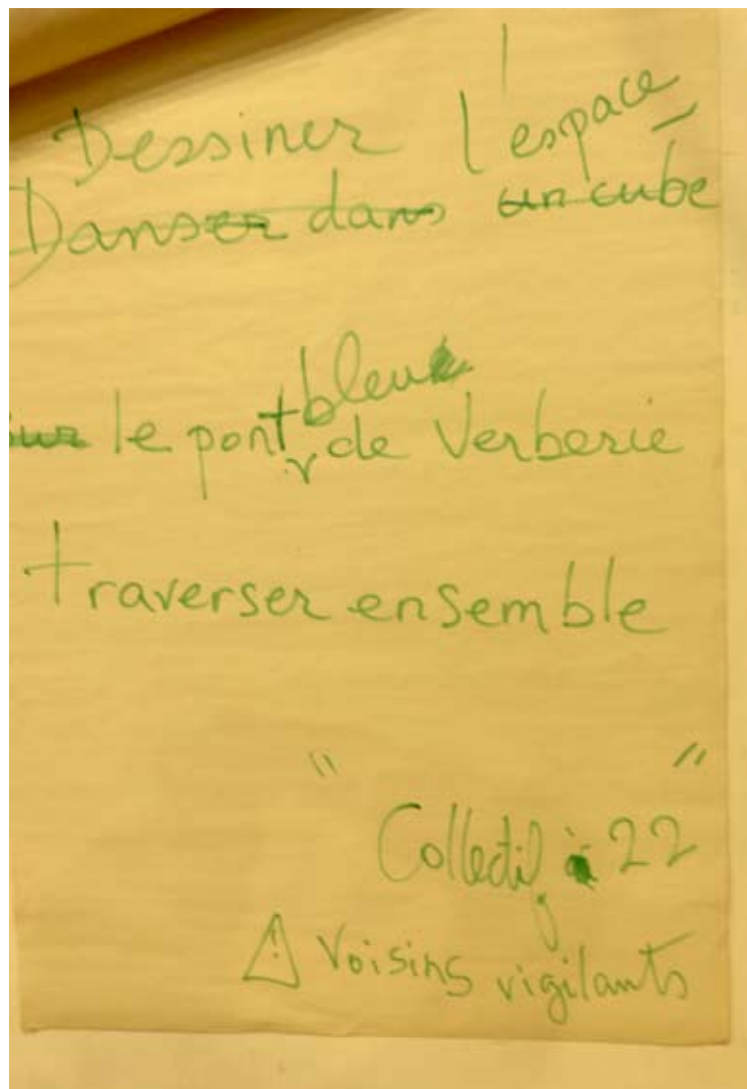 Dessiner l'espace
Danser dans un cube
sur le pont bleu de Verberie
traverser ensemble
" "
Collectif à 22
⚠ Voisins vigilants